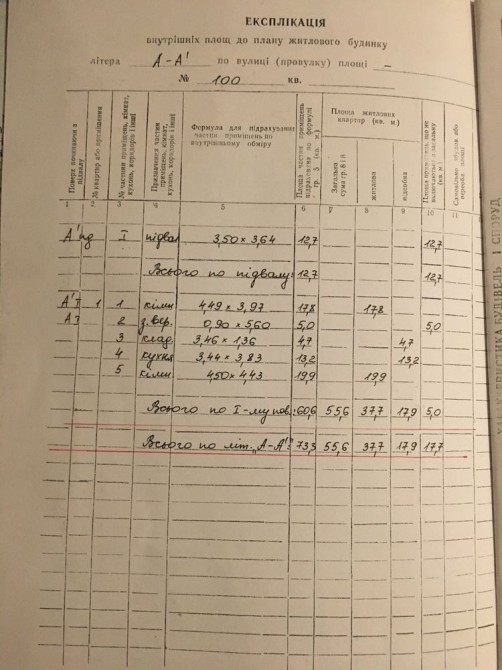 ЕКСПЛІКАЦІЯ
внутрішніх площ до плану житлового будинку
літера А-А' по вулиці (провулку) площі –
№ 100 кв.
Поверх починаючи з підвалу
№ квартир або приміщення
№ частини приміщень, кімнат, кухонь, коридорів і інші
Призначення частин приміщень, кімнат, кухонь, коридорів і інші
Формула для підрахування частин приміщень по внутрішньому обміру
Площа частин приміщень
по формулі гр. 5 (кв. м)
Площа житлових квартир (кв. м.)
Загальна сума гр. 8 і 9
житлова
підсобна
(кв. м)
1 2 3 4 5 6 7 8 9 10 11
А'пд І підвал 3,50 × 3,64 12,7 12,7
Всього по підвалу: 12,7 12,7
А'І 1 1 кімн 4,49 × 3,97 17,8 17,8
АІ 2 з.вер. 0,90 × 5,60 5,0 5,0
3 клад. 3,46 × 1,36 4,7 4,7
4 кухня 3,44 × 3,83 13,2 13,2
5 кімн. 4,50 × 4,43 19,9 19,9
Всього по І-му пов.: 60,6 55,6 37,7 17,9 5,0
Всього по літ. „А-А'": 73,3 55,6 37,7 17,9 17,7
БУДІВЕЛЬ І СПОРУД